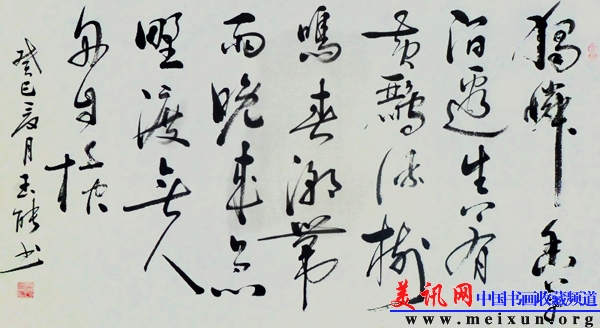 獨憐幽草
澗邊生上有
黃鸝深樹
鳴春潮帶
雨晚來急
野渡無人
舟自橫
癸巳夏月玉能书
美讯网 中国书画收藏频道
www.meixun.org